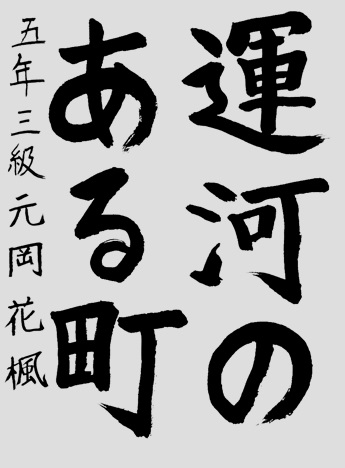 運河の
ある町
五年三級元岡花楓